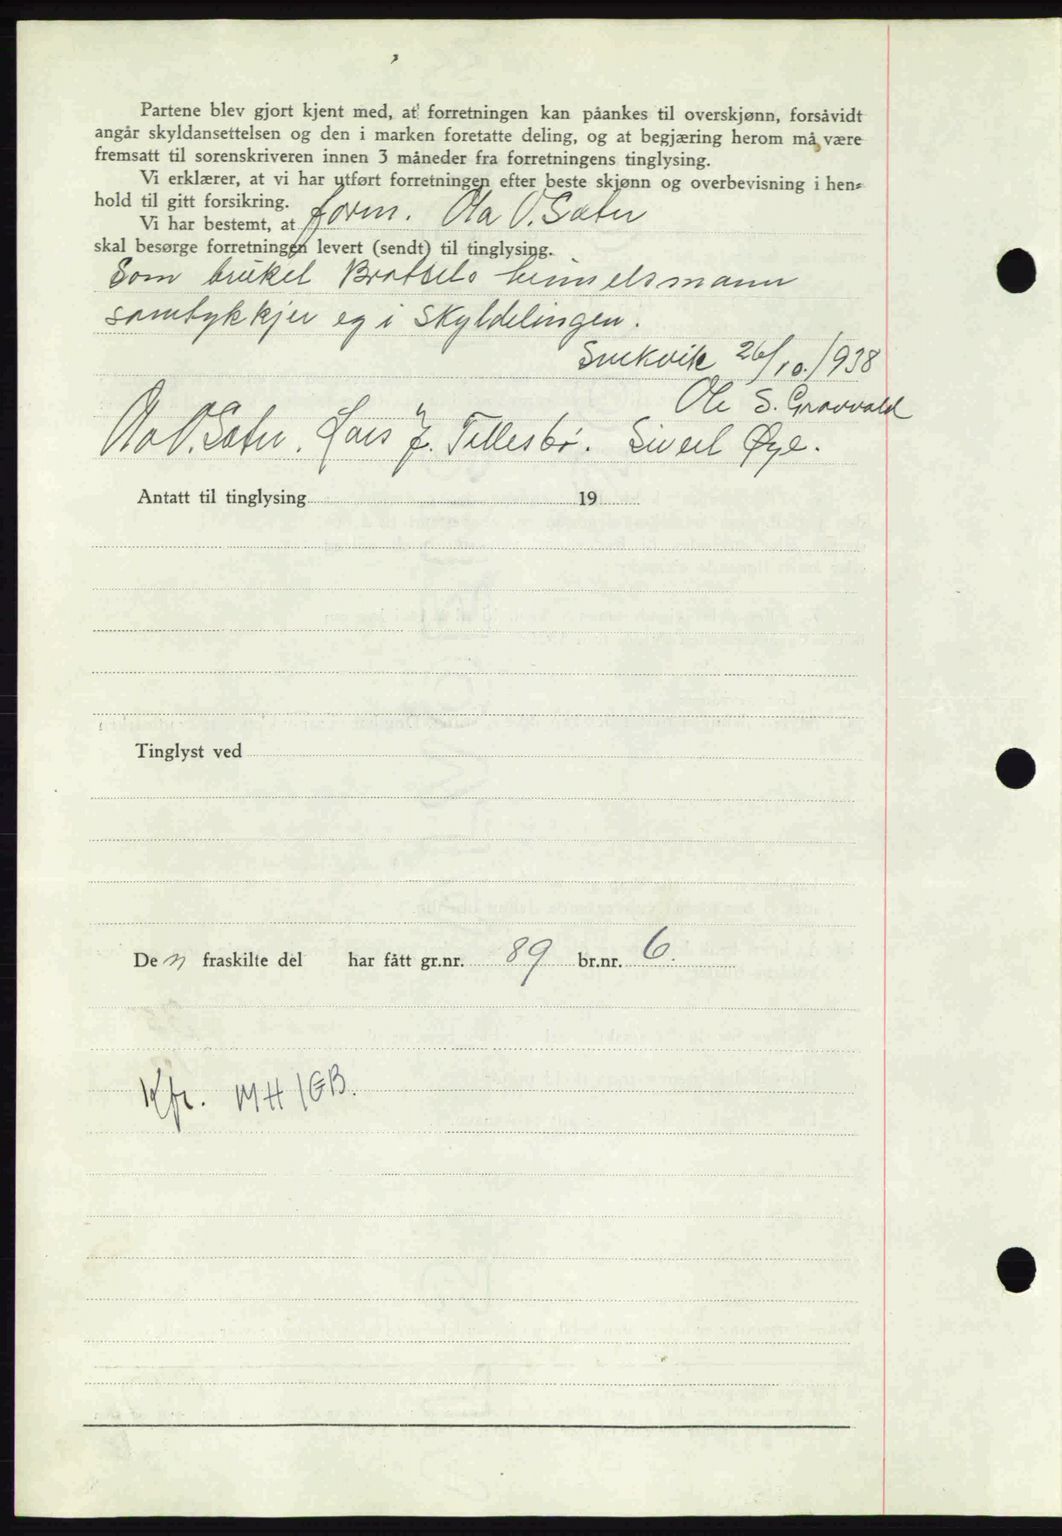 Partene blev gjort kjent med, at forretningen kan påankes til overskjønn, forsåvidt
angår skyldansettelsen og den i marken foretatte deling, og at begjæring herom må være
fremsatt til sorenskriveren innen 3 måneder fra forretningens tinglysing.
Vi erklærer, at vi har utført forretningen efter beste skjønn og overbevisning i hen=
hold til gitt forsikring.
Vi har bestemt, at form. Ola O. Sæter
skal besørge forretningen levert (sendt) til tinglysing.
Som brukel
samtykkjer eg i Skyldelingen.
26/10.1938
Ole S. Gravvold
Ola O. Sæter. Lars J. Tellesbø. Sivert Øye.
Antatt til tinglysing 19
Tinglyst ved
Den fraskilte del har fått gr.nr. 89 br.nr. 6.
Kfr. MH/GB.